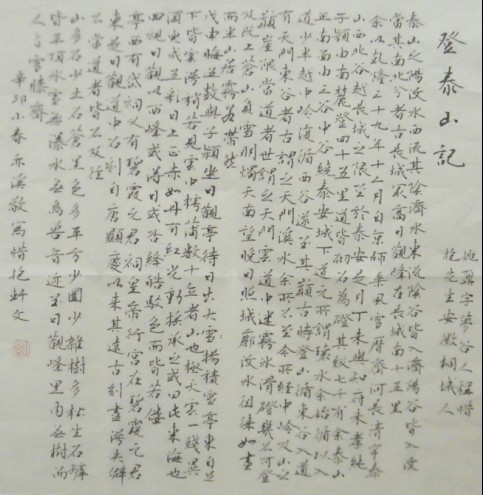 登泰山記
姚鼐字夢谷人稱惜
抱先生安徽桐城人
泰山之陽汶水西流其陰濟水東流陰谷皆入濟陽谷皆入汶
當其南北分者古長城也最高日觀峰在長城南十五里
余以乾隆三十九年十二月自京師乘風雪歷齊河長清穿泰
山西北谷越長城之限至於泰安是月丁未與知府朱孝純
子潁由南麓登四十五里道皆砌石為磴其級七千有餘泰山
正南面有三谷中谷繞泰安城下道元所謂環水余始循以入
道少半越中嶺復循西谷遂至其巔古時登山循東谷入道
有天門東谷者古謂之天門溪水余所不至今所經中嶺及山
巔崖限當道者世謂之天門雲道中迷霧冰滑磴幾不可登
及既上蒼山負雪明燭天南望晚日照城郭汶水徂徠如畫
而半山居霧若帶然
戊申晦五鼓與子潁坐日觀亭待日出大風揚積雪亭東自足
下皆雲漫稍若見雲中樗蒲數十立者山也極天雲一線異
色臾成五彩日上正赤如丹下紅光動搖承之或曰此東海也
回視日觀以西峰或得日或否絳皓駁色而皆若僂
亭西有岱祠又有碧霞元君祠皇帝行宮在碧霞元君
東是日觀道中石刻自唐顯慶以來其遠古刻盡漫失僻
不當道者皆不及往
山多石少土石蒼黑色多平方少圜少雜樹多松生石罅
皆平頂冰雪無瀑水無鳥獸音迹至日觀峰里內無樹而
人與雪膝齊
辛卯小春亦溪敬寫惜抱軒文